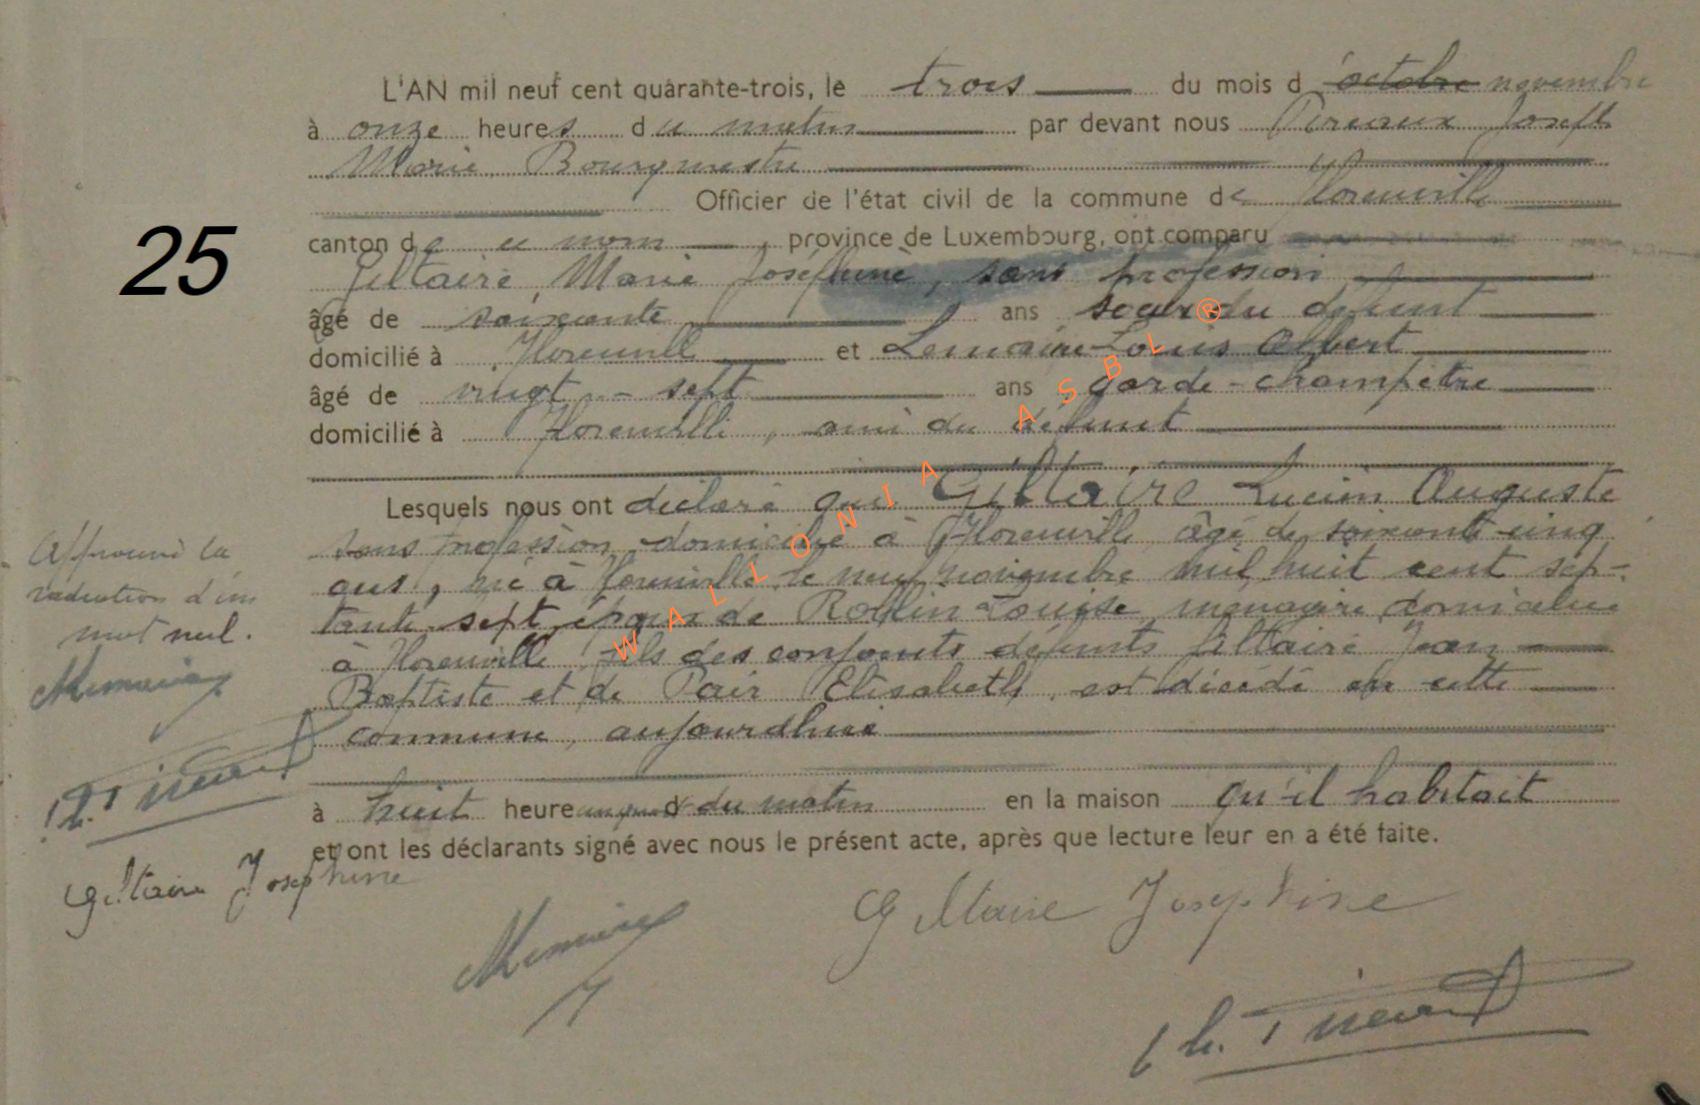 25
L'AN mil neuf cent quarante-trois, le trois du mois d'octobre novembre
à onze heures du matin par devant nous Joseph
Marie Bourgmestre
Officier de l'état civil de la commune de Florenville
canton de ce nom, province de Luxembourg, ont comparu
Giltaire, Marie Joséphine, sans profession
âgé de soixante ans soeur du défunt
domicilié à Florenville et Lemaire Louis Albert
âgé de vingt-sept ans garde-champêtre
domicilié à Florenville, ami du défunt
Lesquels nous ont déclaré que Giltaire Lucien Auguste
sans profession, domicilié à Florenville, âgé de soixante-cinq
ans, né à Florenville le neuf novembre mil huit cent sep-
tante sept, époux de Louise, ménagère, domiciliée
à Florenville, fils des conjoints défunts Giltaire Jean
Baptiste et de Pair Elisabeth, est décédé en cette
commune, aujourdhui
à huit heure du matin en la maison qu'il habitait
et ont les déclarants signé avec nous le présent acte, après que lecture leur en a été faite.
Approuvé la
radiation d'un
mot nul.
Giltaire Josephine
Giltaire Josephine
WALLONIA ASBL ®